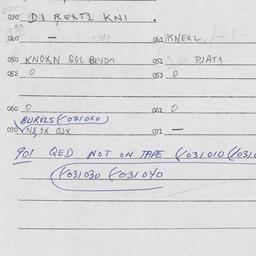 030 DIREXT1 KNI.
040 — 041 KNEXL
050 KNOXN QGL BEYD1 051 PJAT1
052 0 053 0
060 0 061 0
BURVLS (031020)
070 071 —
901 QED NOT ON TAPE (031010 (031
(031030 (031040